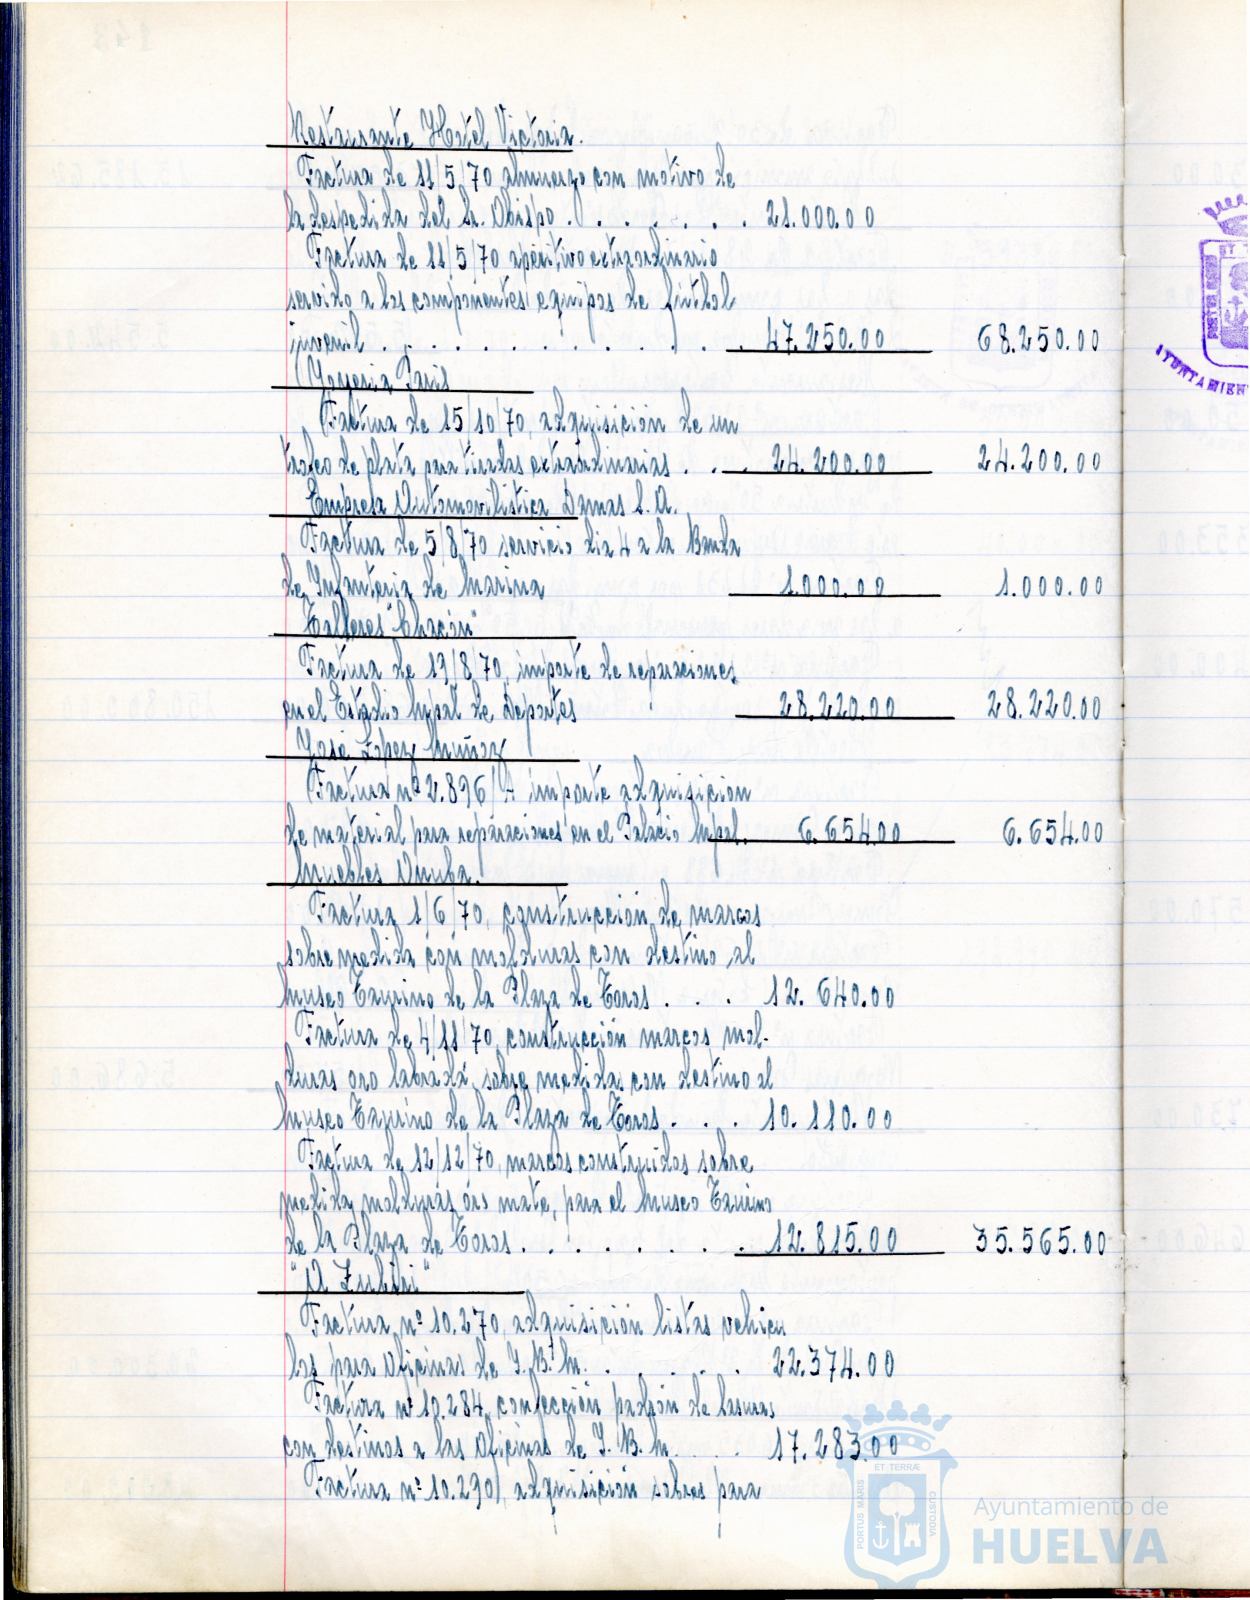 Restaurante Hotel Victoria.
Factura de 11/5/70 almuerzo con motivo de
la despedida del Sr. Obispo . . . . . . . 21.000.00
Factura de 11/5/70 aperitivo extraordinario
servido a los componentes equipos de futbol
juvenil . . . . . . . . . . . 47.250.00 68.250.00
Joyeria Paris
Factura de 15/10/70, adquisición de un
trofeo de plata para tiradas extraordinarias . . . 24.200.00 24.200.00
Empresa Automovilistica Damas S.A.
Factura de 5/8/70 servicio dia 4 a la Banda
de Infanteria de Marina 1.000.00 1.000.00
Talleres "Chacón"
Factura de 19/8/70, importe de reparaciones
en el Estadio Mpal de Deportes 28.220.00 28.220.00
José Lopez Muñoz
Factura nº 2.896/A importe adquisicion
de material para reparaciones en el Palacio Mpal. 6.654.00 6.654.00
Muebles Onuba.
Factura 1/6/70, construcción de marcos
sobre medida con molduras con destino al
Museo Taurino de la Plaza de Toros . . . 12.640.00
Factura de 4/11/70, construcción marcos mol-
duras oro labrada, sobre medidas con destino al
Museo Taurino de la Plaza de Toros . . . 10.110.00
Factura de 12/12/70, marcos construidos sobre
medida, molduras oro mate, para el Museo Taurino
de la Plaza de Toros . . . . . . . . 12.815.00 35.565.00
Factura nº 10.270, adquisición listas vehicu
los para Oficinas de I.B.M. . . . . 22.374.00
Factura nº 10.284, confección padrón de basuras
con destinos a las Oficinas de I.B.M. . . 17.283.00
Factura nº 10.290, adquisición sobres para
AYUNTAMIEN
PORTUS MARIS
ET TERRÆ
CUSTODIA
Ayuntamiento de
HUELVA